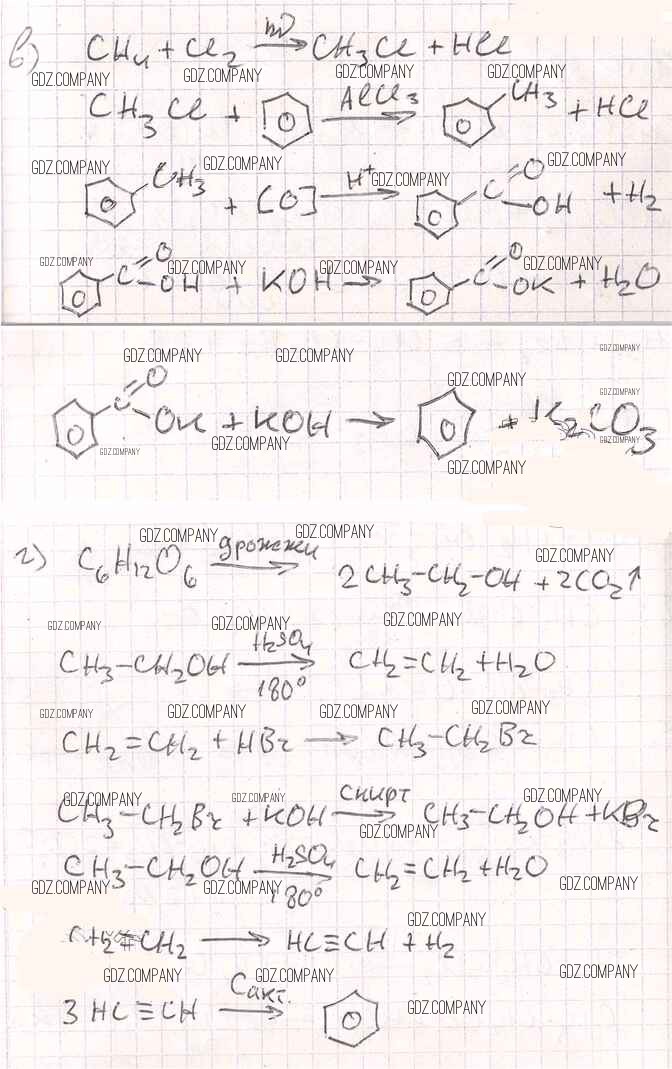 в) CH₄ + Cl₂ →(hν) CH₃Cl + HCl
GDZ.COMPANY GDZ.COMPANY GDZ.COMPANY GDZ.COMPANY
CH₃Cl + →(AlCl₃) CH₃ + HCl
GDZ.COMPANY GDZ.COMPANY GDZ.COMPANY GDZ.COMPANY
CH₃ + [O] →(H⁺) C =O -OH + H₂
GDZ.COMPANY GDZ.COMPANY GDZ.COMPANY GDZ.COMPANY
C =O -OH + KOH → C =O -OK + H₂O
GDZ.COMPANY GDZ.COMPANY GDZ.COMPANY
GDZ.COMPANY GDZ.COMPANY
C =O -OK + KOH → + K₂CO₃
GDZ.COMPANY GDZ.COMPANY GDZ.COMPANY
GDZ.COMPANY
GDZ.COMPANY GDZ.COMPANY GDZ.COMPANY
г) C₆H₁₂O₆ →(дрожжи) 2CH₃-CH₂-OH + 2CO₂↑
GDZ.COMPANY GDZ.COMPANY GDZ.COMPANY
CH₃-CH₂OH →(H₂SO₄ 180°) CH₂=CH₂ + H₂O
GDZ.COMPANY GDZ.COMPANY GDZ.COMPANY GDZ.COMPANY
CH₂=CH₂ + HBr → CH₃-CH₂Br
GDZ.COMPANY GDZ.COMPANY GDZ.COMPANY
CH₃-CH₂Br + KOH →(спирт) CH₃-CH₂OH + KBr
GDZ.COMPANY
CH₃-CH₂OH →(H₂SO₄ 180°) CH₂=CH₂ + H₂O
GDZ.COMPANY GDZ.COMPANY GDZ.COMPANY
GDZ.COMPANY
CH₂=CH₂ → HC≡CH + H₂
GDZ.COMPANY GDZ.COMPANY GDZ.COMPANY
3HC≡CH →(Cакт.)
GDZ.COMPANY